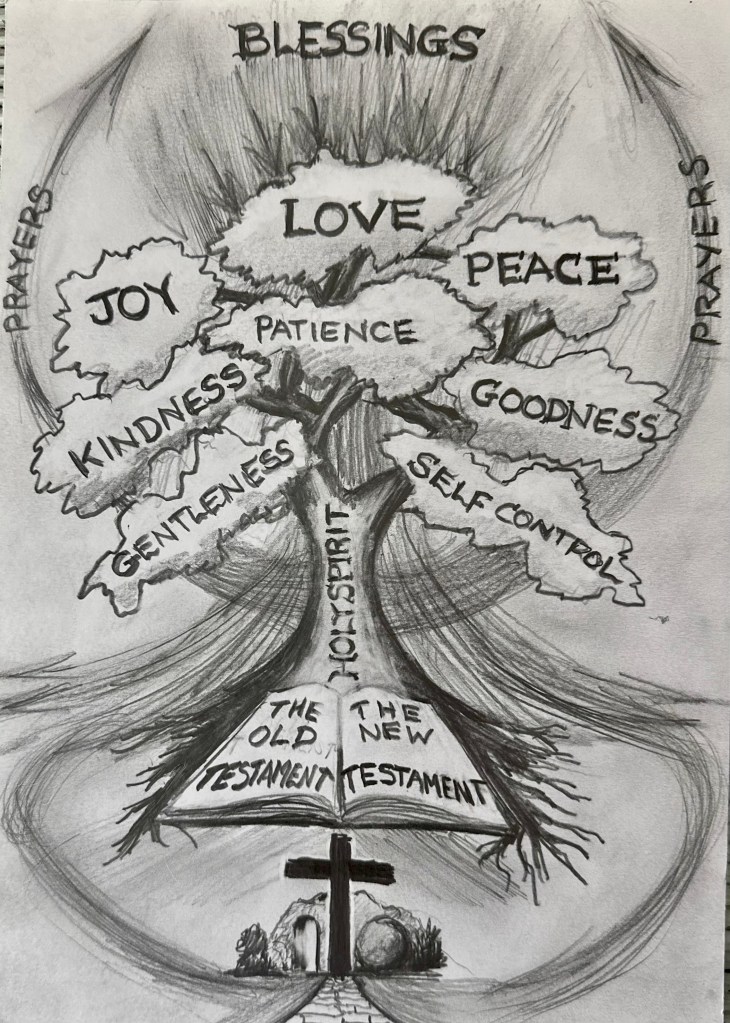 BLESSINGS
PRAYERS
PRAYERS
LOVE
JOY
PEACE
PATIENCE
KINDNESS
GOODNESS
GENTLENESS
SELF CONTROL
HOLY SPIRIT
THE
OLD
TESTAMENT
THE
NEW
TESTAMENT